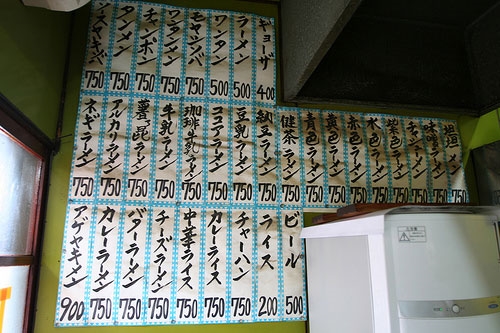 ギョーザ 400
ラーメン 500
ワンタン 500
モヤシソバ 750
ワンタンメン 750
チャンポン 750
タンメン 750
味噌ラーメン 750
チャンメン 750
紫色ラーメン 750
水色ラーメン 750
赤色ラーメン 750
黄色ラーメン 750
青色ラーメン 750
健茶ラーメン 750
納豆ラーメン 750
豆乳ラーメン 750
ココアラーメン 750
珈琲牛乳ラーメン 750
牛乳ラーメン 750
薯昆ラーメン 750
アルカリラーメン 750
ネギラーメン 750
ビール 500
ライス 200
チャーハン 750
カレーライス 750
中華ライス 750
チーズラーメン 750
バターラーメン 750
カレーラーメン 750
アゲヤキメン 900